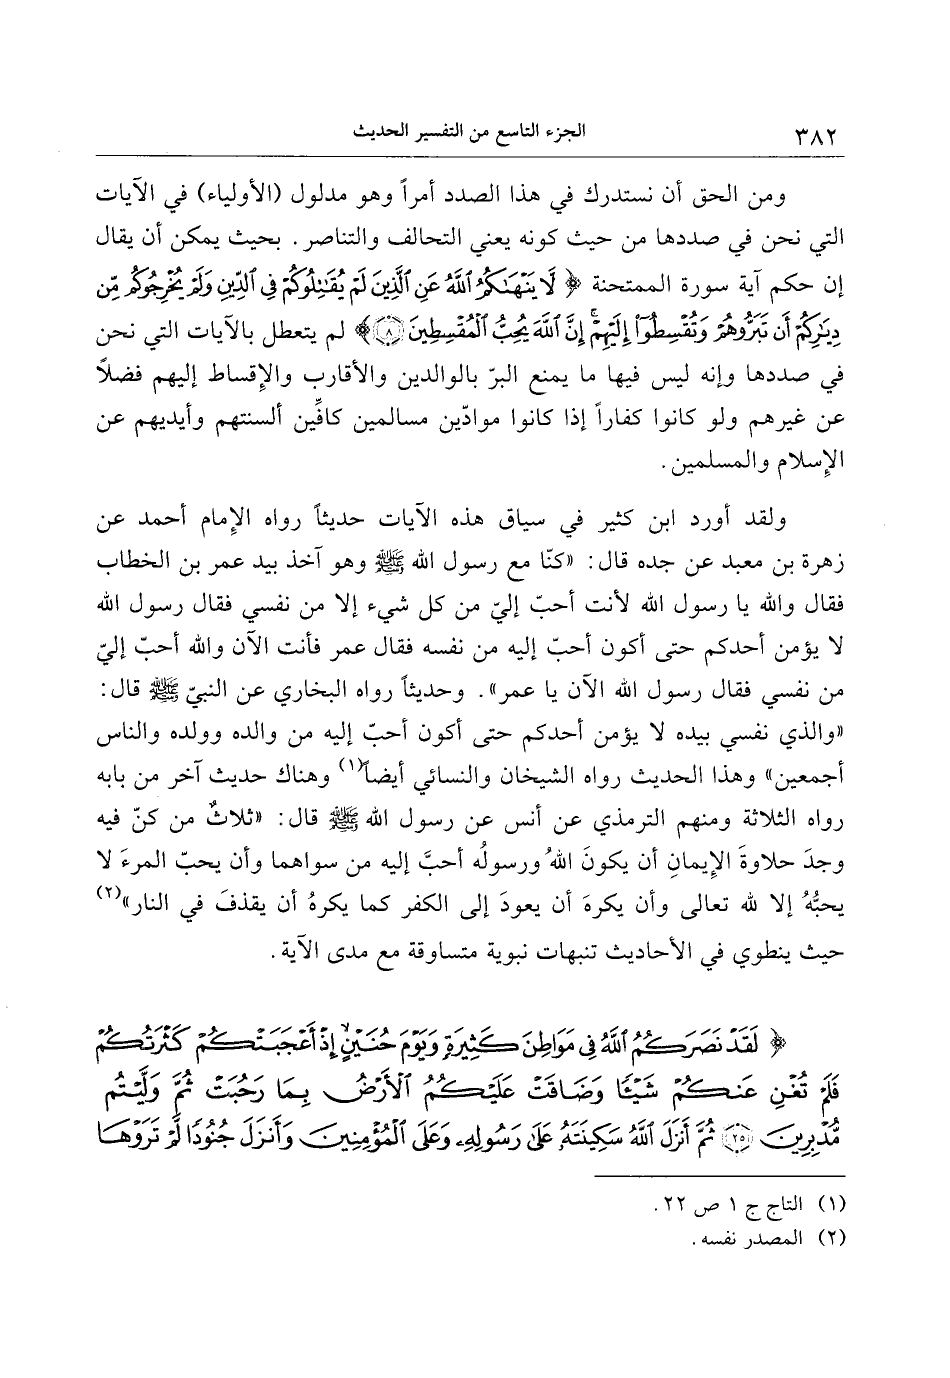 ٣٨٢ الجزء التاسع من التفسير الحديث
ومن الحق أن نستدرك في هذا الصدد أمراً وهو مدلول (الأولياء) في الآيات
التي نحن في صددها من حيث كونه يعني التحالف والتناصر. بحيث يمكن أن يقال
إن حكم آية سورة الممتحنة ﴿ لَّا يَنْهَىٰكُمُ ٱللَّهُ عَنِ ٱلَّذِينَ لَمْ يُقَٰتِلُوكُمْ فِى ٱلدِّينِ وَلَمْ يُخْرِجُوكُم مِّن
دِيَٰرِكُمْ أَن تَبَرُّوهُمْ وَتُقْسِطُوٓا۟ إِلَيْهِمْ ۚ إِنَّ ٱللَّهَ يُحِبُّ ٱلْمُقْسِطِينَ ٨ ﴾ لم يتعطل بالآيات التي نحن
في صددها وإنه ليس فيها ما يمنع البرّ بالوالدين والأقارب والإقساط إليهم فضلاً
عن غيرهم ولو كانوا كفاراً إذا كانوا موادّين مسالمين كافِّين ألسنتهم وأيديهم عن
الإسلام والمسلمين.
ولقد أورد ابن كثير في سياق هذه الآيات حديثاً رواه الإمام أحمد عن
زهرة بن معبد عن جده قال: «كنّا مع رسول الله ﷺ وهو آخذ بيد عمر بن الخطاب
فقال والله يا رسول الله لأنت أحبّ إليّ من كل شيء إلا من نفسي فقال رسول الله
لا يؤمن أحدكم حتى أكون أحبّ إليه من نفسه فقال عمر فأنت الآن والله أحبّ إليّ
من نفسي فقال رسول الله الآن يا عمر». وحديثاً رواه البخاري عن النبيّ ﷺ قال:
«والذي نفسي بيده لا يؤمن أحدكم حتى أكون أحبّ إليه من والده وولده والناس
أجمعين» وهذا الحديث رواه الشيخان والنسائي أيضاً(١) وهناك حديث آخر من بابه
رواه الثلاثة ومنهم الترمذي عن أنس عن رسول الله ﷺ قال: «ثلاثٌ من كنّ فيه
وجدَ حلاوةَ الإيمانِ أن يكونَ اللهُ ورسولُه أحبَّ إليه من سواهما وأن يحبّ المرءَ لا
يحبُّهُ إلا لله تعالى وأن يكرهَ أن يعودَ إلى الكفر كما يكرهُ أن يقذفَ في النار»(٢)
حيث ينطوي في الأحاديث تنبهات نبوية متساوقة مع مدى الآية.
﴿ لَقَدْ نَصَرَكُمُ ٱللَّهُ فِى مَوَاطِنَ كَثِيرَةٍ وَيَوْمَ حُنَيْنٍ ۙ إِذْ أَعْجَبَتْكُمْ كَثْرَتُكُمْ
فَلَمْ تُغْنِ عَنكُمْ شَيْـًٔا وَضَاقَتْ عَلَيْكُمُ ٱلْأَرْضُ بِمَا رَحُبَتْ ثُمَّ وَلَّيْتُم
مُّدْبِرِينَ ٢٥ ثُمَّ أَنزَلَ ٱللَّهُ سَكِينَتَهُۥ عَلَىٰ رَسُولِهِۦ وَعَلَى ٱلْمُؤْمِنِينَ وَأَنزَلَ جُنُودًا لَّمْ تَرَوْهَا
(١) التاج ج ١ ص ٢٢.
(٢) المصدر نفسه.